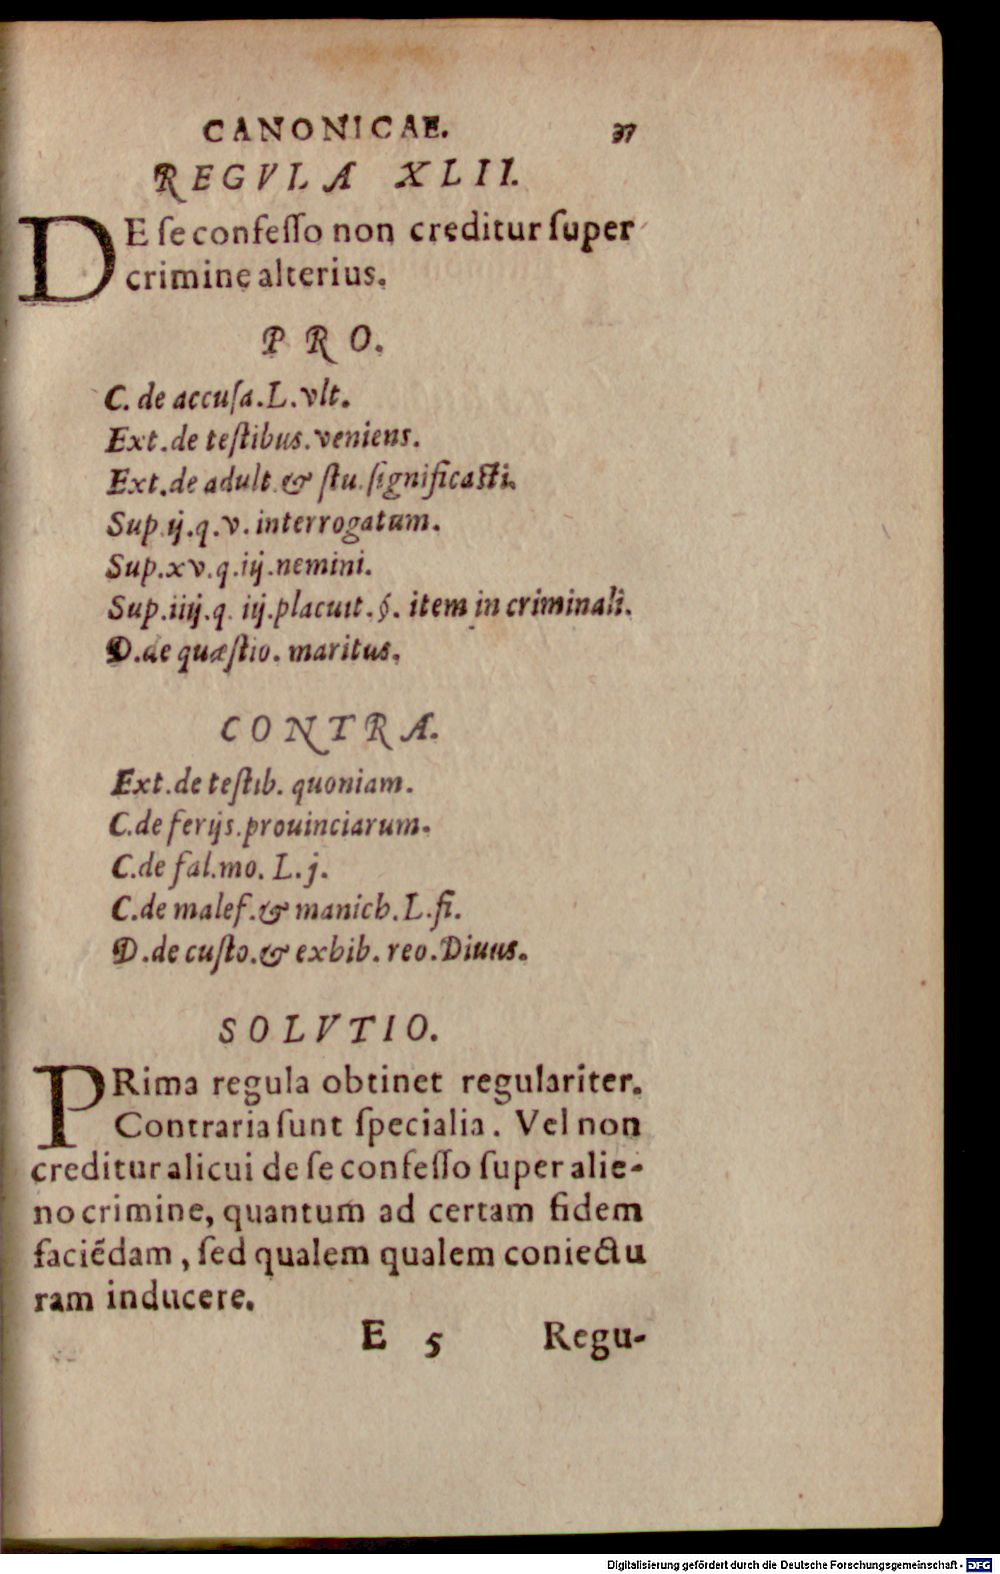 CANONICAE. 37
REGVLA XLII.
DE ſe confeſſo non creditur ſuper
crimine alterius.
PRO.
C. de accuſa. L. vlt.
Ext. de teſtibus. veniens.
Ext. de adult. & ſtu. ſignificaſti.
Sup. ij. q. v. interrogatum.
Sup. xv. q. iij. nemini.
Sup. iiij. q. iij. placuit. §. item in criminali.
D. de quæſtio. maritus.
CONTRA.
Ext. de teſtib. quoniam.
C. de ferijs. prouinciarum.
C. de fal. mo. L. j.
C. de malef. & manich. L. fi.
D. de cuſto. & exhib. reo. Diuus.
SOLVTIO.
PRima regula obtinet regulariter.
Contraria ſunt ſpecialia. Vel non
creditur alicui de ſe confeſſo ſuper alie-
no crimine, quantum ad certam fidem
faciẽdam, ſed qualem qualem coniectu
ram inducere.
E 5 Regu-
Digitalisierung gefördert durch die Deutsche Forschungsgemeinschaft - DFG